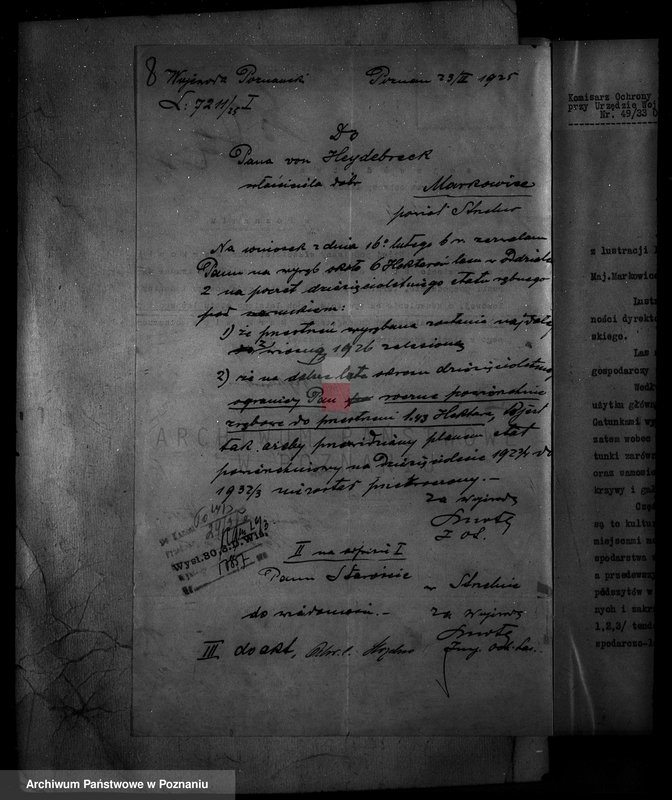 8
Wojewoda Poznański Poznań 23/II 1925
L: 7211/25 I
Do
Pana von Heydebreck
właściciela dóbr
Markowice
powiat Strzelno
Na wniosek z dnia 16. lutego b r. zezwalam
Panu na wyrąb około 6 Hektarów lasu w Oddziale
2 na poczet dziesięcioletniego etatu rębnego
pod warunkiem:
1) że przestrzeń wyrąbana zostanie najdalej
wiosną 1926 zalesioną
2) że na dalsze lata okresu dziesięcioletniego
ograniczy Pan swe powierzchnie
zrębowe do przestrzeni 1.43 Hektara, to jest
tak ażeby przewidziany planem etat
powierzchniowy na dziesięciolecie 1923/4 do
1932/3 nie został przekroczony.-
Za Wojewodę
II na odpisie I
Panu Staroście w Strzelnie
do wiadomości.- Za Wojewodę
III do akt,
ARCHIWUM PAŃSTWOWE
POZNAŃ
Komisarz Ochrony
przy Urzędzie Woj
Nr. 49/33 O
z lustracji
Maj.Markowice
Lustr
ności dyrekt
skiego.
Las
gospodarczy
Wedł
użytku główn
Gatunkami wy
zatem wobec
tunki zarówn
oraz unowoc
krzywy i ga
Częś
są to kultu
miejscami na
spodarstwa
a przedewszy
podszytów w
nych i zakr
1,2,3/ tend
spodarczo-l
Archiwum Państwowe w Poznaniu